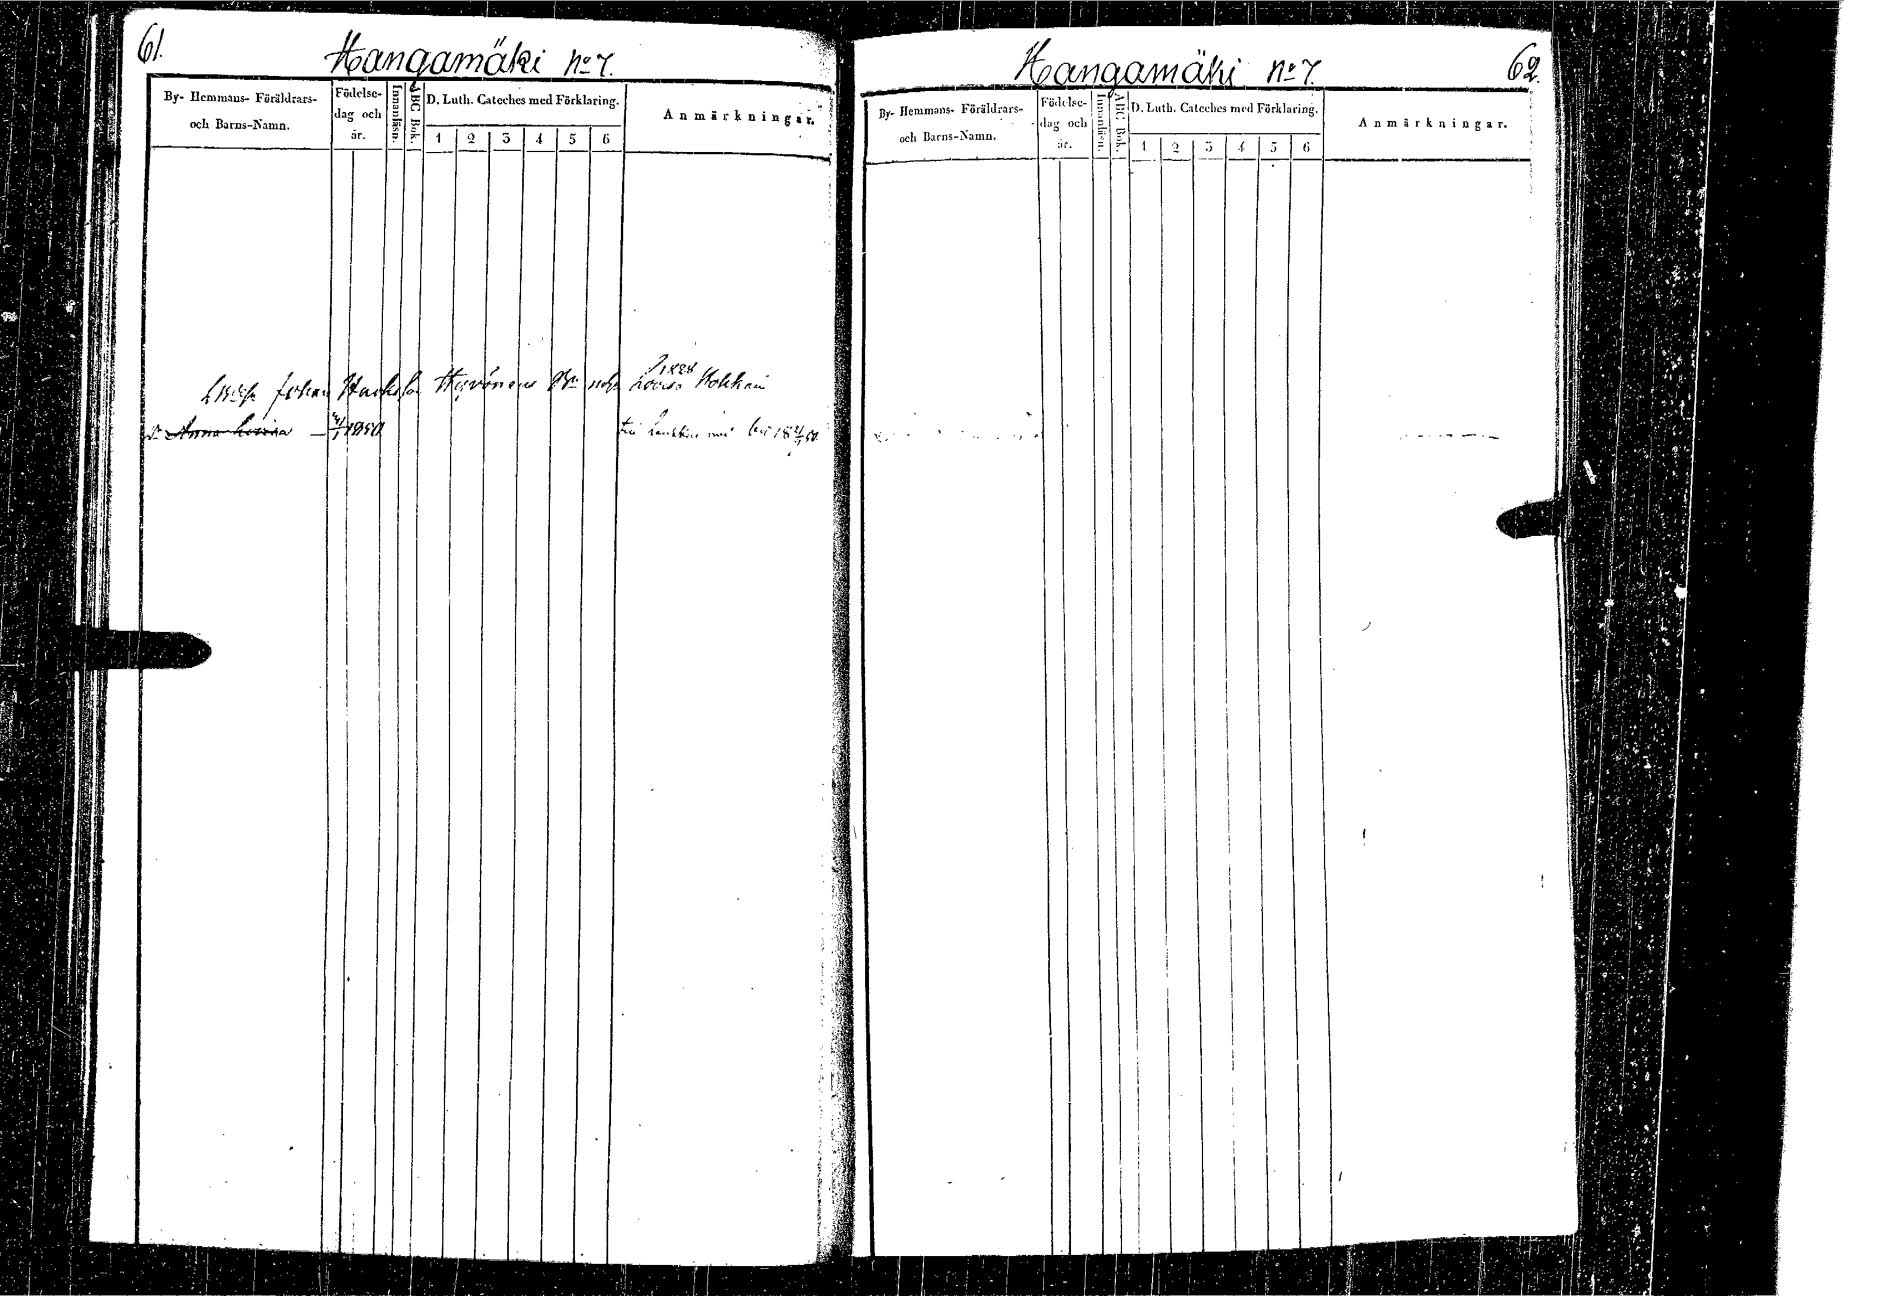 61.
Hangamäki No 7.
By- Hemmans- Föräldrars-
och Barns-Namn.
Födelse-
dag och
år.
Innanläsn.
ABC Bok.
D. Luth. Cateches med Förklaring.
1 2 3 4 5 6
Anmärkningar.
1828
Johan Hyvönens Lovisa
Anna Lovisa 1850
62.
Hangamäki No 7.
By- Hemmans- Föräldrars-
och Barns-Namn.
Födelse-
dag och
år.
Innanläsn.
ABC Bok.
D. Luth. Cateches med Förklaring.
1 2 3 4 5 6
Anmärkningar.